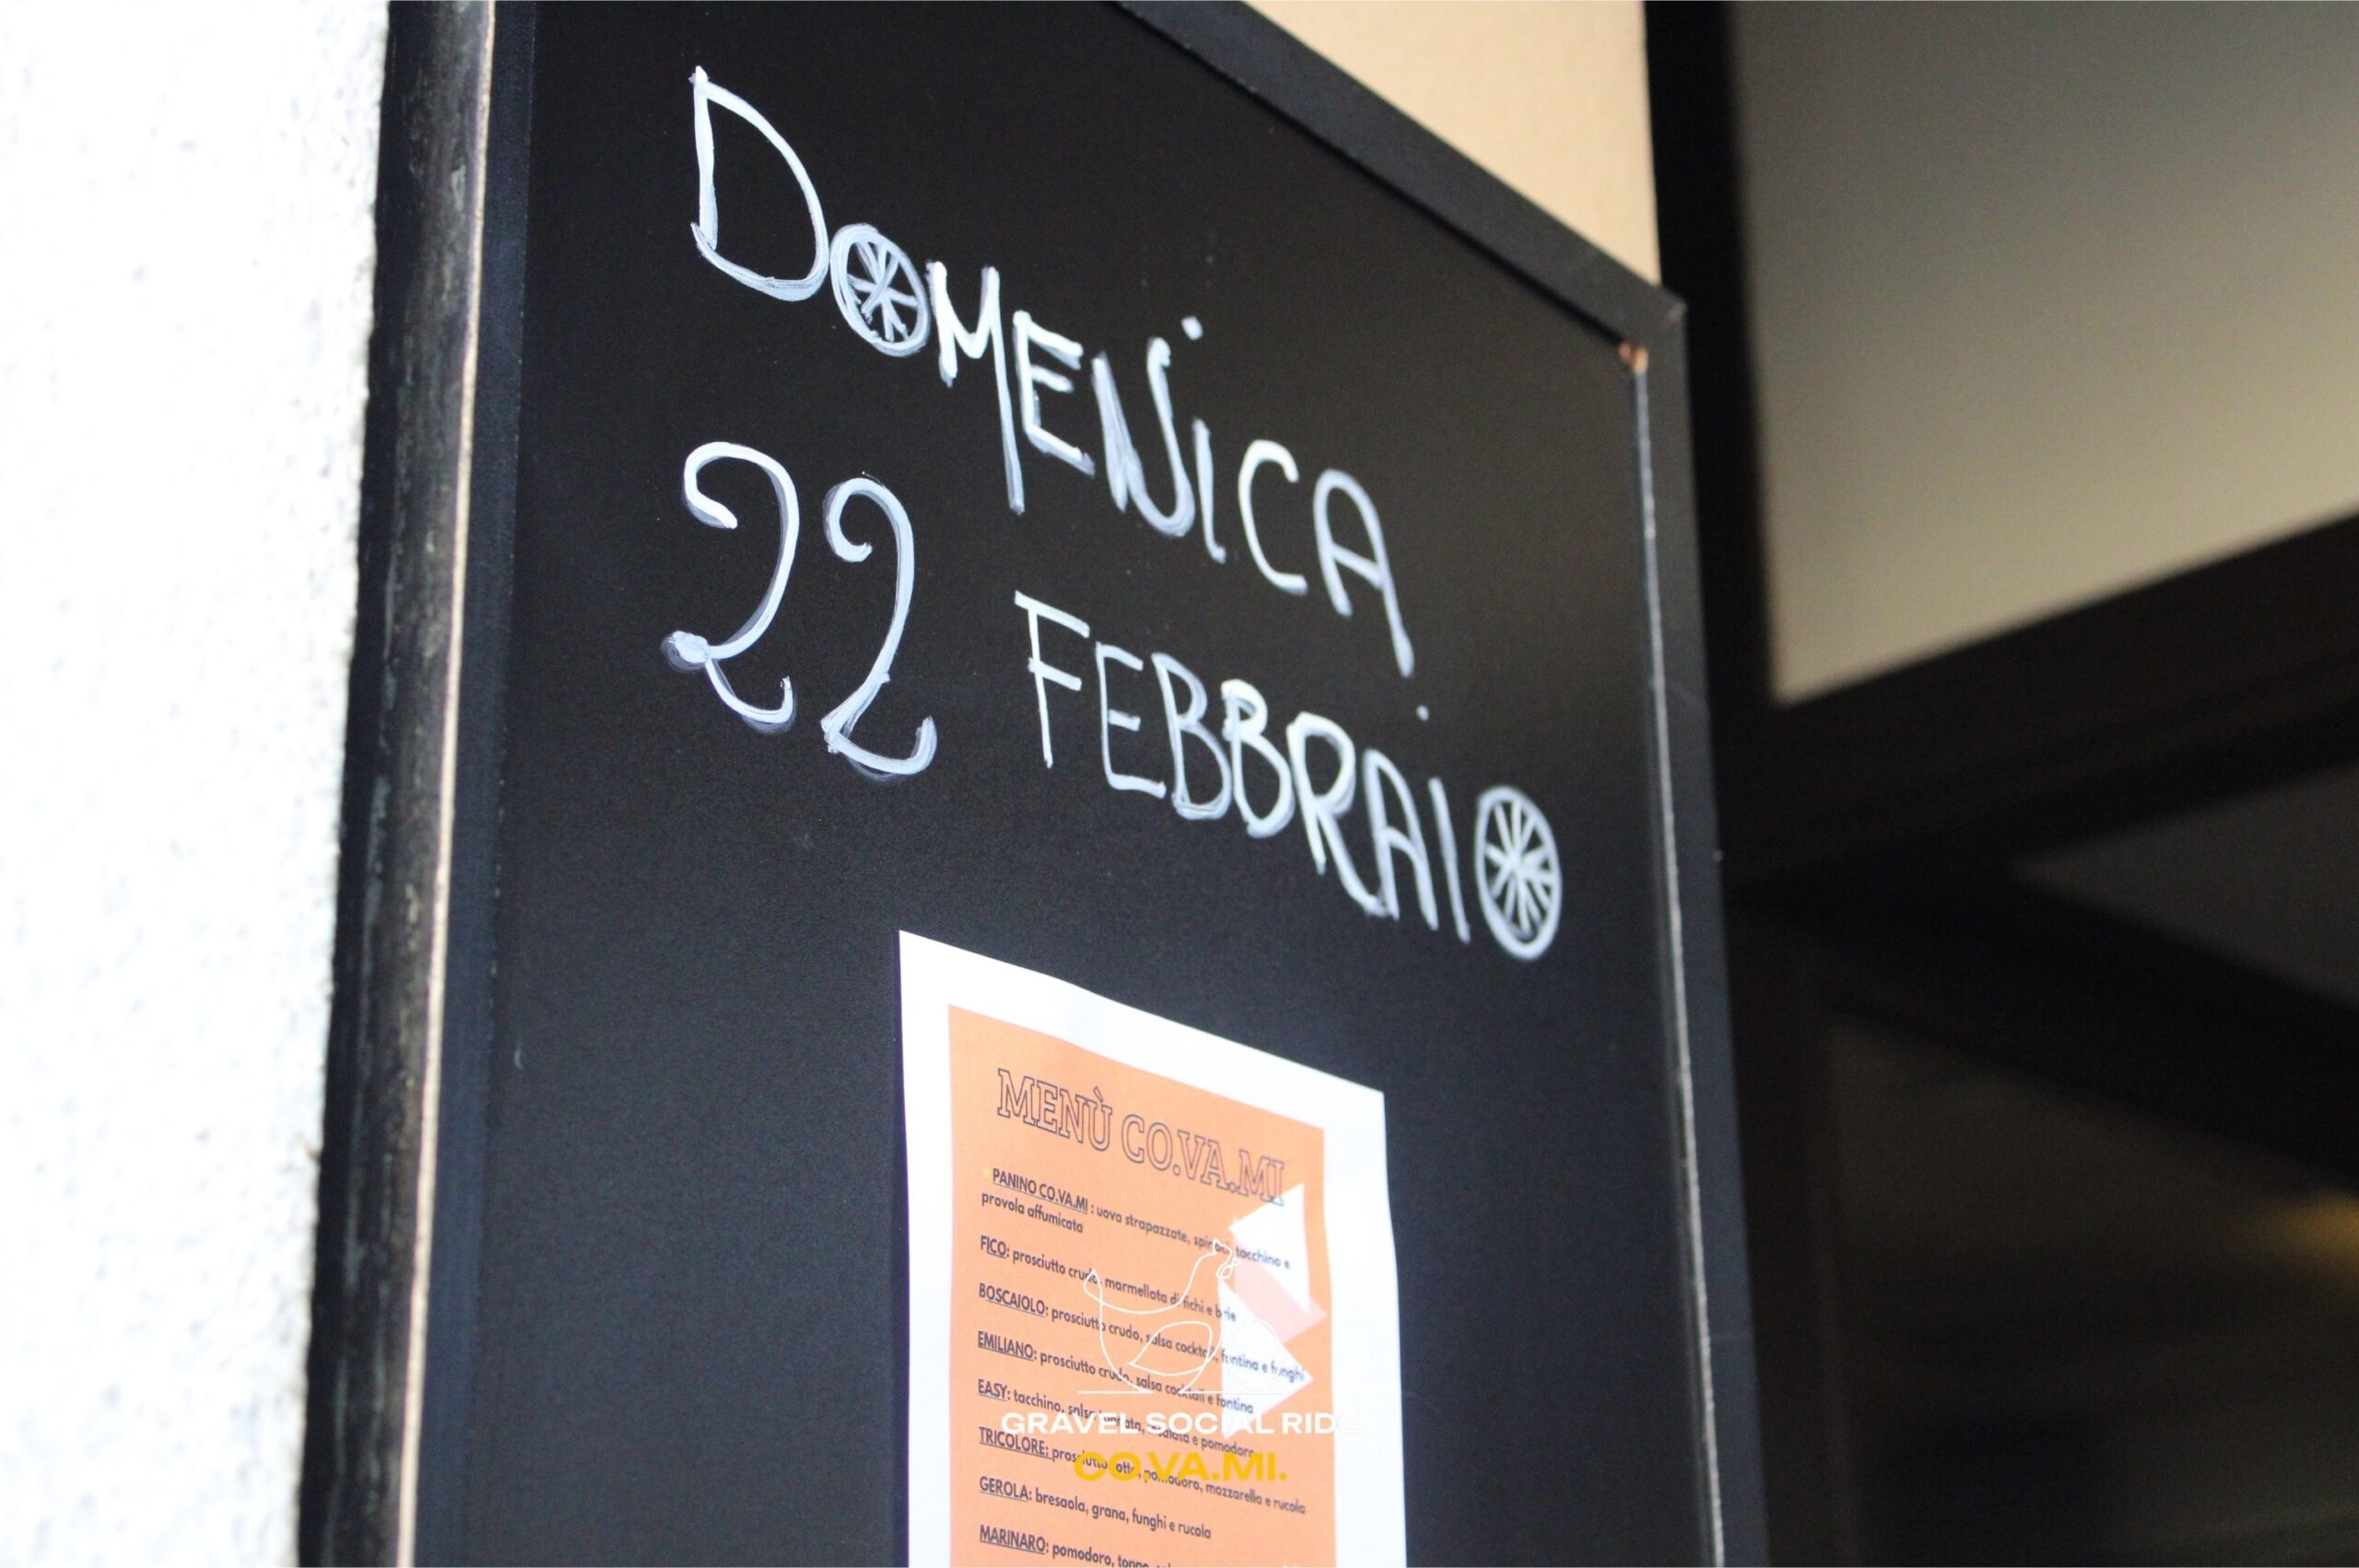 DOMENiCA
22 FEBBRAiO
MENÙ CO.VA.MI
PANINO CO.VA.MI : uova strapazzate, spinaci, tacchino e
provola affumicata
FICO: prosciutto crudo, marmellata di fichi e brie
BOSCAIOLO: prosciutto crudo, salsa cocktail, fontina e funghi
EMILIANO: prosciutto crudo, salsa cocktail e fontina
EASY: tacchino, salsa tartata, insalata e pomodoro
TRICOLORE: prosciutto cotto, pomodoro, mozzarella e rucola
GEROLA: bresaola, grana, funghi e rucola
MARINARO: pomodoro, tonno,
GRAVEL SOCIAL RIDE
CO.VA.MI.